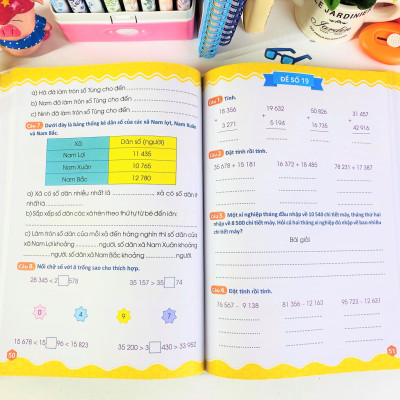 a) Hà đã làm tròn số Tùng cho đến
b) Nam đã làm tròn số Tùng cho đến
c) Ninh đã làm tròn số Tùng cho đến
Câu 7 Dưới đây là bảng thống kê dân số của các xã Nam Lợi, Nam Xuân
và Nam Bắc.
Xã Dân số (người)
Nam Lợi 11 435
Nam Xuân 10 765
Nam Bắc 12 780
a) Xã có số dân nhiều nhất là xã có số dân ít
nhất là
b) Sắp xếp số dân các xã trên theo thứ tự từ bé đến lớn:
c) Làm tròn số dân của mỗi xã đến hàng nghìn thì số dân của
xã Nam Lợi khoảng người, số dân xã Nam Xuân khoảng
người, số dân xã Nam Bắc khoảng người.
Câu 8 Nối chữ số với ô trống sao cho thích hợp.
28 345 < 2 578 35 157 > 35 74
0 4 9 7
15 678 < 15 96 < 15 823 35 200 > 3 430 > 33 952
50
ĐỀ SỐ 19
Câu 1 Tính.
18 356 19 632 50 826 31 457
+ + + +
3 271 5 194 16 735 42 916
Câu 2 Đặt tính rồi tính.
35 678 + 15 181 16 372 + 18 485 78 231 + 17 387
Câu 3 Một xí nghiệp tháng đầu nhập về 10 540 chi tiết máy, tháng thứ hai
nhập về 8 500 chi tiết máy. Hỏi cả hai tháng xí nghiệp đó nhập về bao nhiêu
chi tiết máy?
Bài giải
Câu 4 Đặt tính rồi tính.
76 567 - 9 138 81 356 - 12 163 95 723 - 12 631
51